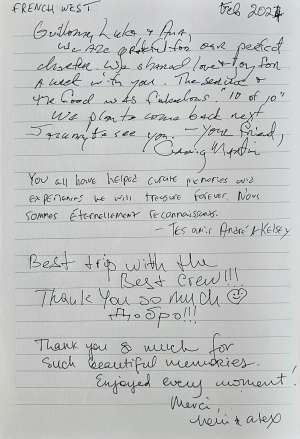 FRENCH WEST
Feb 2024
Guillaume, Luke & Ana,
We are grateful for our perfect
charter. We shared love & joy for
a week with you. The service &
the food was fabulous. "10 of 10"
We plan to come back next
January to see you. - Your friend,
Craig Martin
You all have helped curate memories and
experiences we will treasure forever. Nous
sommes éternellement reconnaissants.
- Tes amis André & Kelsey
Best trip with the
Best Crew!!!
Thank You so much ☺
Добро!!!
Thank you so much for
Such beautiful memories.
Enjoyed every moment!
Merci,
& Alex